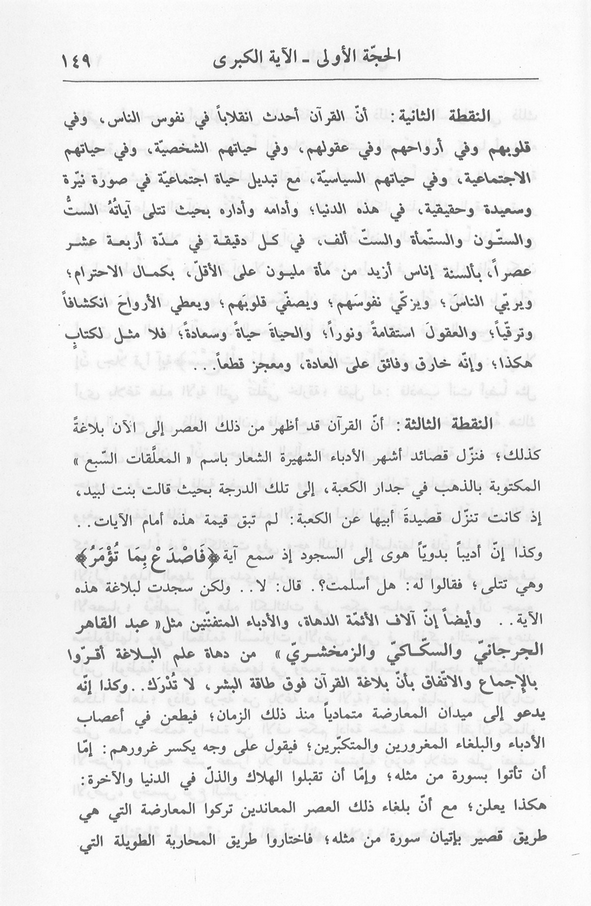 الحجّة الأولى - الآية الكبرى ١٤٩
النقطة الثانية: أنّ القرآن أحدث انقلاباً في نفوس الناس، وفي
قلوبهم وفي أرواحهم وفي عقولهم، وفي حياتهم الشخصيّة، وفي حياتهم
الاجتماعية، وفي حياتهم السياسيّة، مع تبديل حياة اجتماعيّة في صورة نيّرة
وسعيدة وحقيقية، في هذه الدنيا؛ وأدامه وأداره بحيث تتلى آياتُهُ الستُّ
والستّون والستّمأة والستّ ألف، في كل دقيقة في مدّة أربعة عشر
عصراً، بألسنة إناس أزيد من مأة مليون على الأقلّ، بكمال الاحترام؛
ويربّي الناسَ؛ ويزكّي نفوسَهم؛ ويصفّي قلوبَهم؛ ويعطي الأرواحَ انكشافاً
وترقّياً؛ والعقولَ استقامةً ونوراً؛ والحياةَ حياةً وسعادةً؛ فلا مثل لكتابٍ
هكذا؛ وإنّه خارق وفائق على العادة، ومعجز قطعاً...
النقطة الثالثة: أنّ القرآن قد أظهر من ذلك العصر إلى الآن بلاغةً
كذلك؛ فنزّل قصائد أشهر الأدباء الشهيرة الشعار باسم «المعلّقات السّبع»
المكتوبة بالذهب في جدار الكعبة، إلى تلك الدرجة بحيث قالت بنت لبيد،
إذ كانت تنزّل قصيدةَ أبيها عن الكعبة: لم تبق قيمة هذه أمام الآيات..
وكذا إنّ أديباً بدويّاً هوى إلى السجود إذ سمع آية ﴿فَاصْدَعْ بِمَا تُؤْمَرُ﴾
وهي تتلى؛ فقالوا له: هل أسلمت؟. قال: لا.. ولكن سجدت لبلاغة هذه
الآية.. وأيضاً إنّ آلاف الأئمّة الدهاة، والأدباء المتفننين مثل «عبد القاهر
الجرجاني والسكّاكي والزمخشريّ» من دهاة علم البلاغة أقرّوا
بالإجماع والاتفاق بأنّ بلاغة القرآن فوق طاقة البشر، لا تُدْرَك.. وكذا إنّه
يدعو إلى ميدان المعارضة متمادياً منذ ذلك الزمان؛ فيطعن في أعصاب
الأدباء والبلغاء المغرورين والمتكبّرين؛ فيقول على وجه يكسر غرورهم: إمّا
أن تأتوا بسورة من مثله؛ وإمّا أن تقبلوا الهلاك والذلّ في الدنيا والآخرة:
هكذا يعلن؛ مع أنّ بلغاء ذلك العصر المعاندين تركوا المعارضة التي هي
طريق قصير بإتيان سورة من مثله؛ فاختاروا طريق المحاربة الطويلة التي